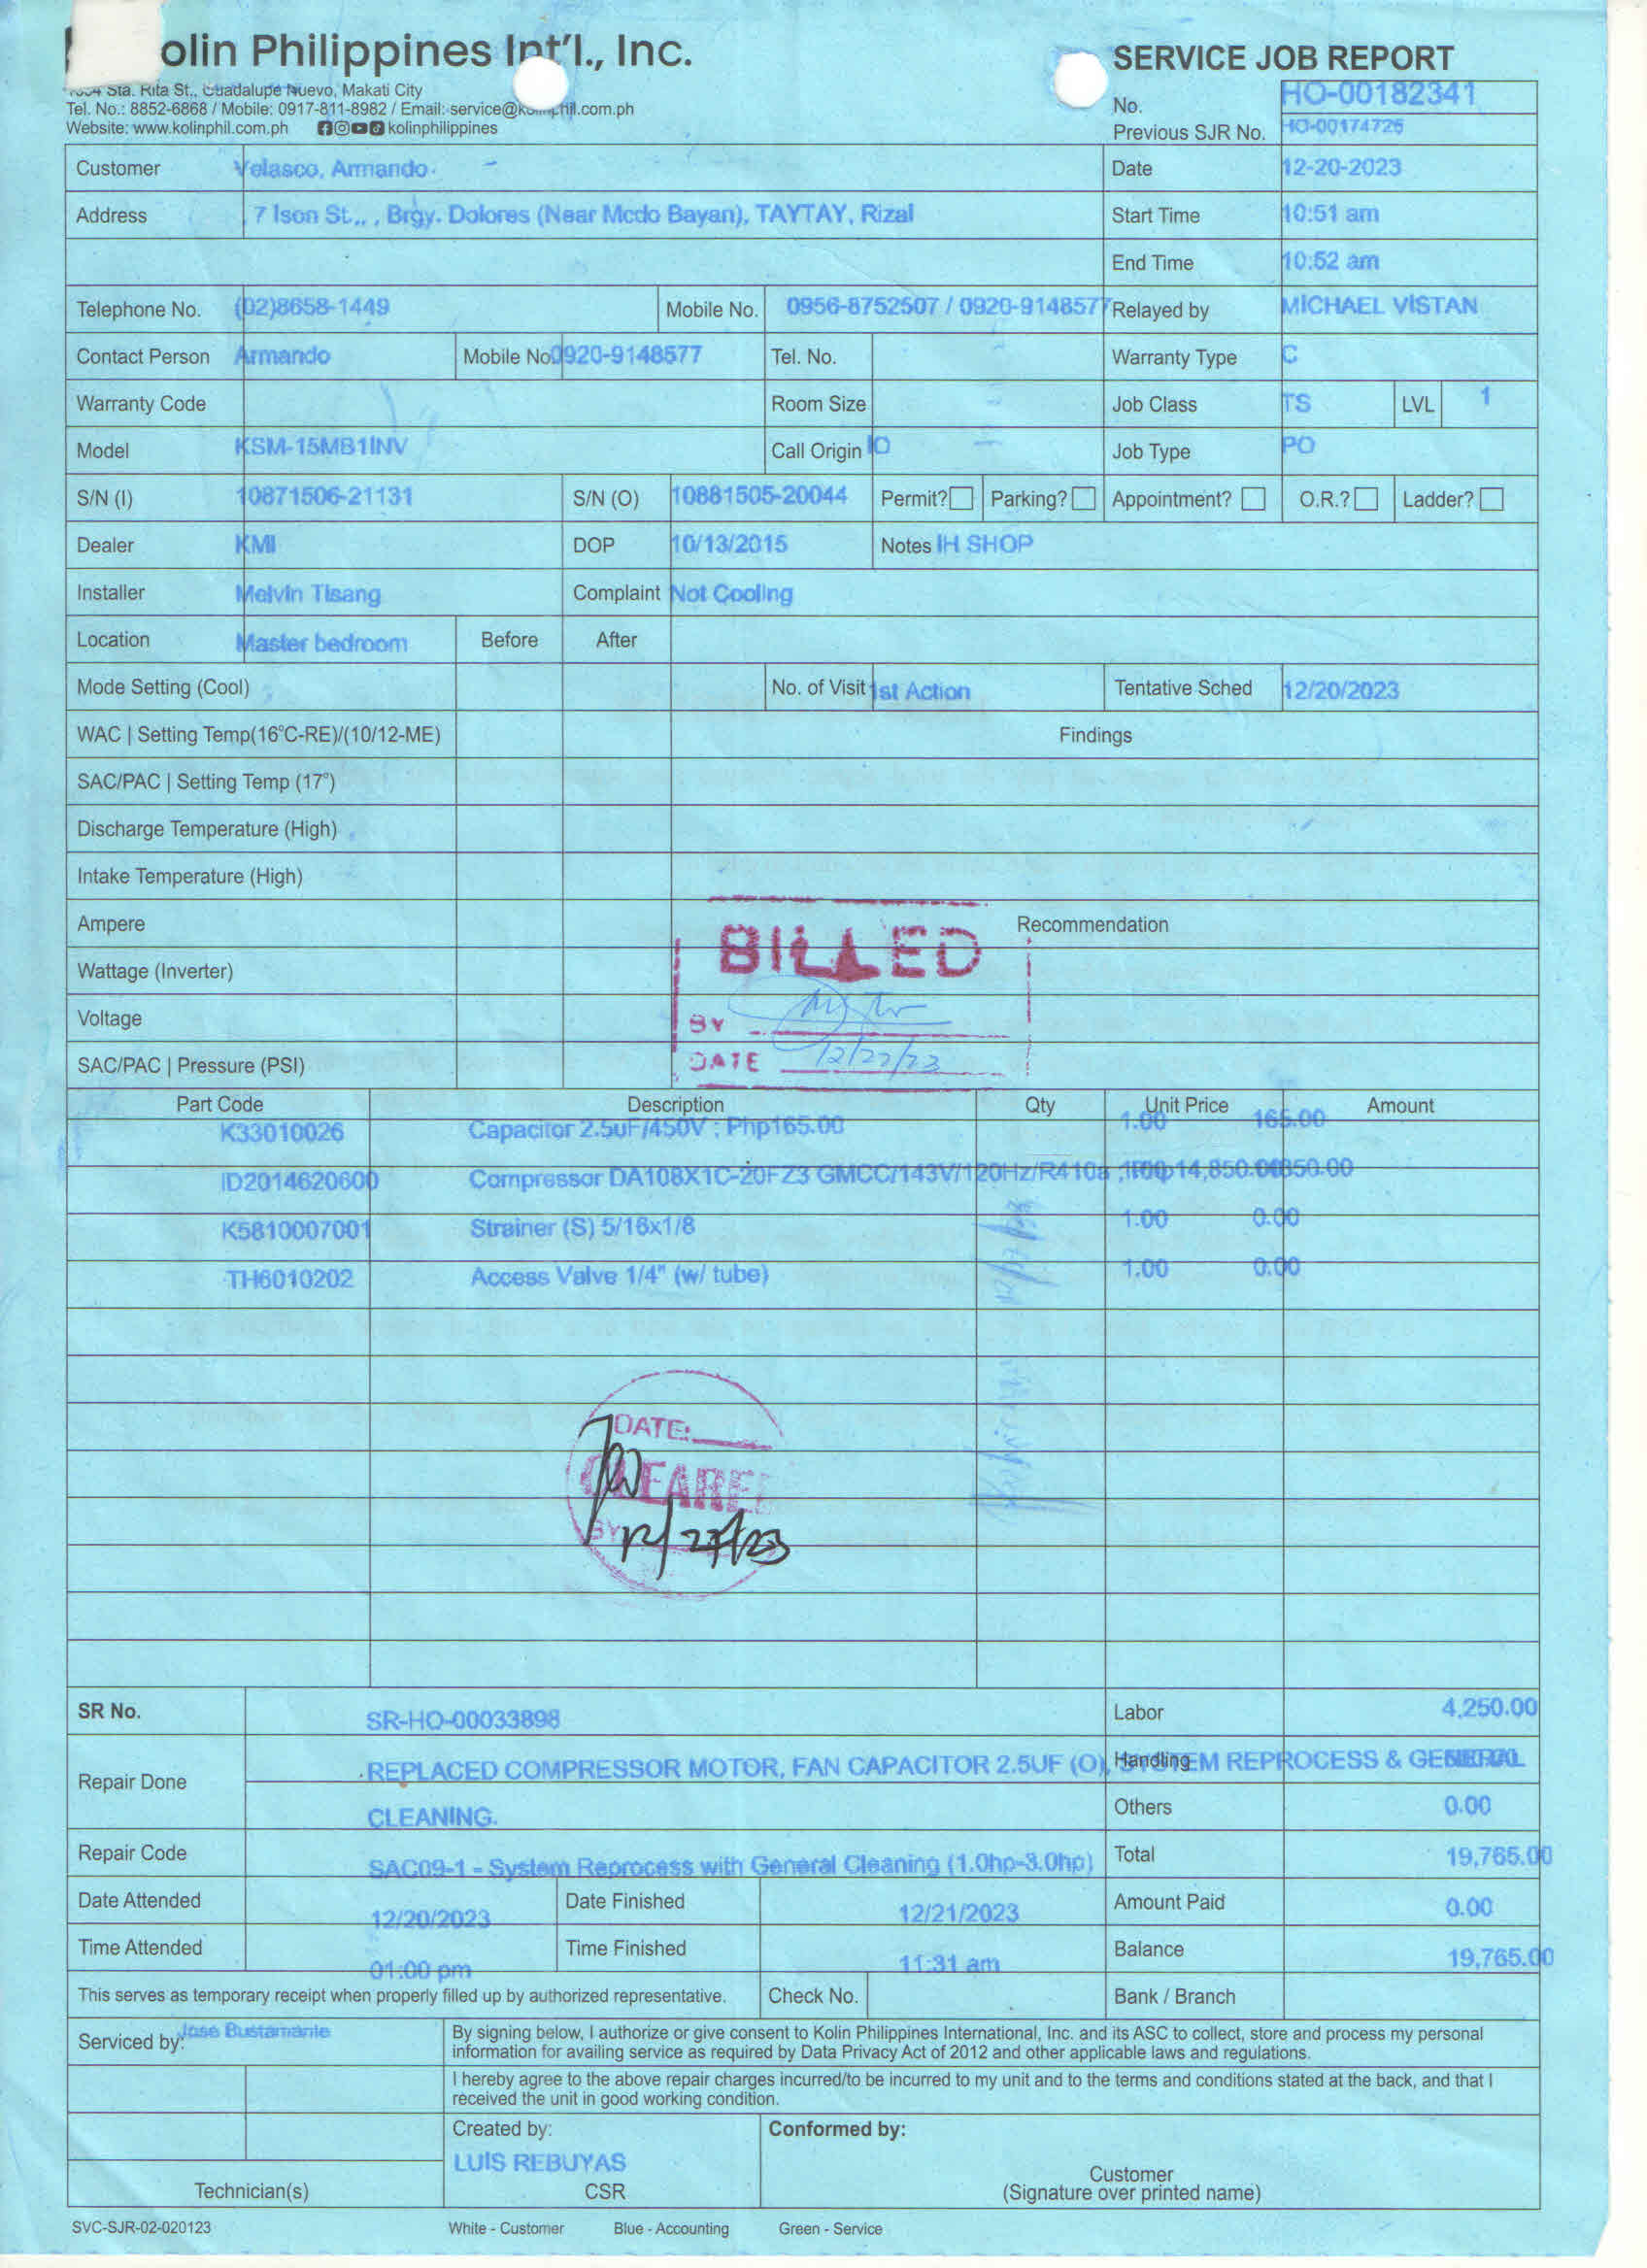 olin Philippines Int'l., Inc.
SERVICE JOB REPORT
Sta. Rita St., Guadalupe Nuevo, Makati City
Tel. No.: 8852-6868 / Mobile: 0917-811-8982 / Email: service@kolinphil.com.ph
Website: www.kolinphil.com.ph kolinphilippines
No. HO-00182341
Previous SJR No. HO-00174726
Customer Velasco, Armando Date 12-20-2023
Address 7 Ison St., , Brgy. Dolores (Near Mcdo Bayan), TAYTAY, Rizal Start Time 10:51 am
End Time 10:52 am
Telephone No. (02)8658-1449 Mobile No. 0956-8752507 / 0920-9148577 Relayed by MICHAEL VISTAN
Contact Person Armando Mobile No 0920-9148577 Tel. No. Warranty Type C
Warranty Code Room Size Job Class TS LVL 1
Model KSM-15MB1INV Call Origin IO Job Type PO
S/N (I) 10871506-21131 S/N (O) 10881505-20044 Permit? Parking? Appointment? O.R.? Ladder?
Dealer KMI DOP 10/13/2015 Notes IH SHOP
Installer Melvin Tisang Complaint Not Cooling
Location Master bedroom Before After
Mode Setting (Cool) No. of Visit 1st Action Tentative Sched 12/20/2023
WAC | Setting Temp(16°C-RE)/(10/12-ME) Findings
SAC/PAC | Setting Temp (17°)
Discharge Temperature (High)
Intake Temperature (High)
Ampere Recommendation
BILLED
Wattage (Inverter)
Voltage
BY
DATE 12/27/23
SAC/PAC | Pressure (PSI)
Part Code Description Qty Unit Price Amount
K33010026 Capacitor 2.5uF/450V ; Php165.00 1.00 165.00
ID2014620600 Compressor DA108X1C-20FZ3 GMCC/143V/120Hz/R410a ; 14,850.00
K5810007001 Strainer (S) 5/16x1/8 1.00 0.00
TH6010202 Access Valve 1/4" (w/ tube) 1.00 0.00
DATE:
CLEARE
BY
12/27/23
SR No. SR-HO-00033898 Labor 4,250.00
Repair Done REPLACED COMPRESSOR MOTOR, FAN CAPACITOR 2.5UF (O), SYSTEM REPROCESS & GENERAL Handling
CLEANING. Others 0.00
Repair Code SAC09-1 - System Reprocess with General Cleaning (1.0hp-3.0hp) Total 19,765.00
Date Attended 12/20/2023 Date Finished 12/21/2023 Amount Paid 0.00
Time Attended 01:00 pm Time Finished 11:31 am Balance 19,765.00
This serves as temporary receipt when properly filled up by authorized representative. Check No. Bank / Branch
Serviced by: Jose Bustamante
By signing below, I authorize or give consent to Kolin Philippines International, Inc. and its ASC to collect, store and process my personal
information for availing service as required by Data Privacy Act of 2012 and other applicable laws and regulations.
I hereby agree to the above repair charges incurred/to be incurred to my unit and to the terms and conditions stated at the back, and that I
received the unit in good working condition.
Created by: Conformed by:
LUIS REBUYAS
Technician(s) CSR Customer
(Signature over printed name)
SVC-SJR-02-020123 White - Customer Blue - Accounting Green - Service